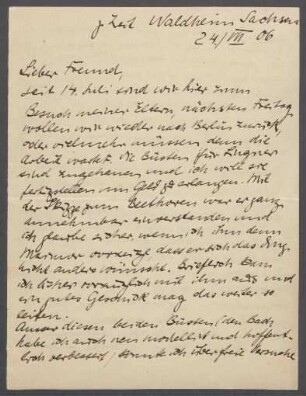 z Zeit Waldheim Sachsen
24/VII 06
Lieber Freund,
seit 14. Juli sind wir hier zum
Besuch meiner Eltern, nächsten Freitag
wollen wir wieder nach Berlin zurück,
oder vielmehr müssen denn die
Arbeit wartet. Die Büsten für Lingner
sind zugehauen und ich will sie
fertigstellen um Geld zu erlangen. Mit
der Skizze zum Beethoven war er ganz
annehmbar einverstanden und
ich glaube sicher, wenn ich ihm den
Marmor vorzeige dass er sich das Ding
nicht anders wünscht. Brieflich kam
ich bisher vorzüglich mit ihm aus und
ein gutes Geschick mag das weiter so
leiten.
Ausser diesen beiden Büsten, den Bach
habe ich auch neu modelliert und hoffent-
lich verbessert, konnte ich über freie